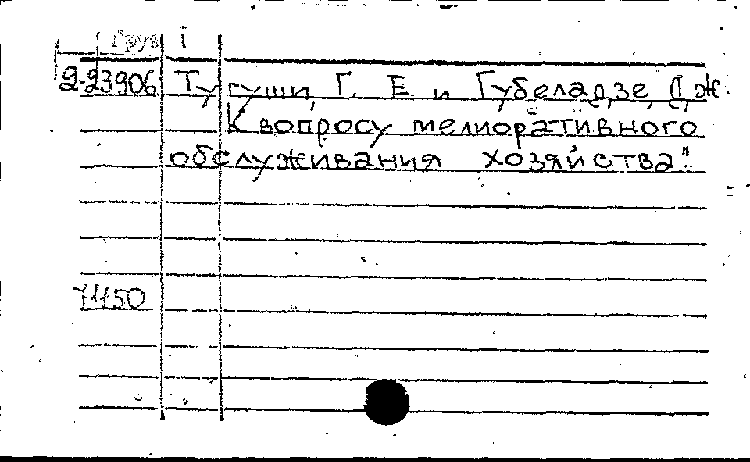 Груз i
2-23906 Тугуши, Г. Е и Губеладзе, Д, Ж.
К вопросу мелиоративного
обслуживания хозяйства".
71150